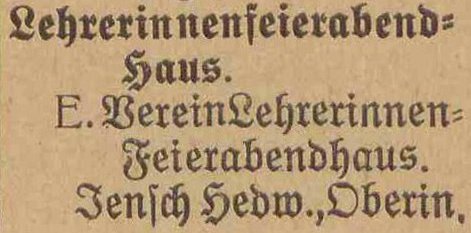 Lehrerinnenfeierabend=
Haus.
E. Verein Lehrerinnen=
Feierabendhaus.
Jensch Hedw., Oberin,